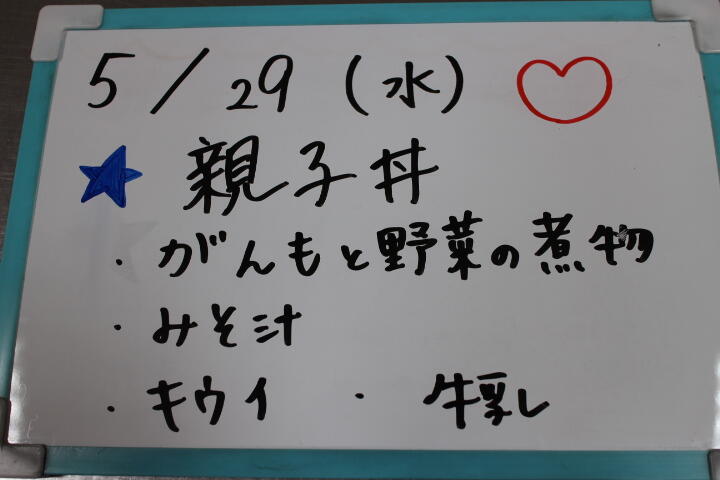 5/29(水)
親子丼
・がんもと野菜の煮物
・みそ汁
・キウイ ・牛乳